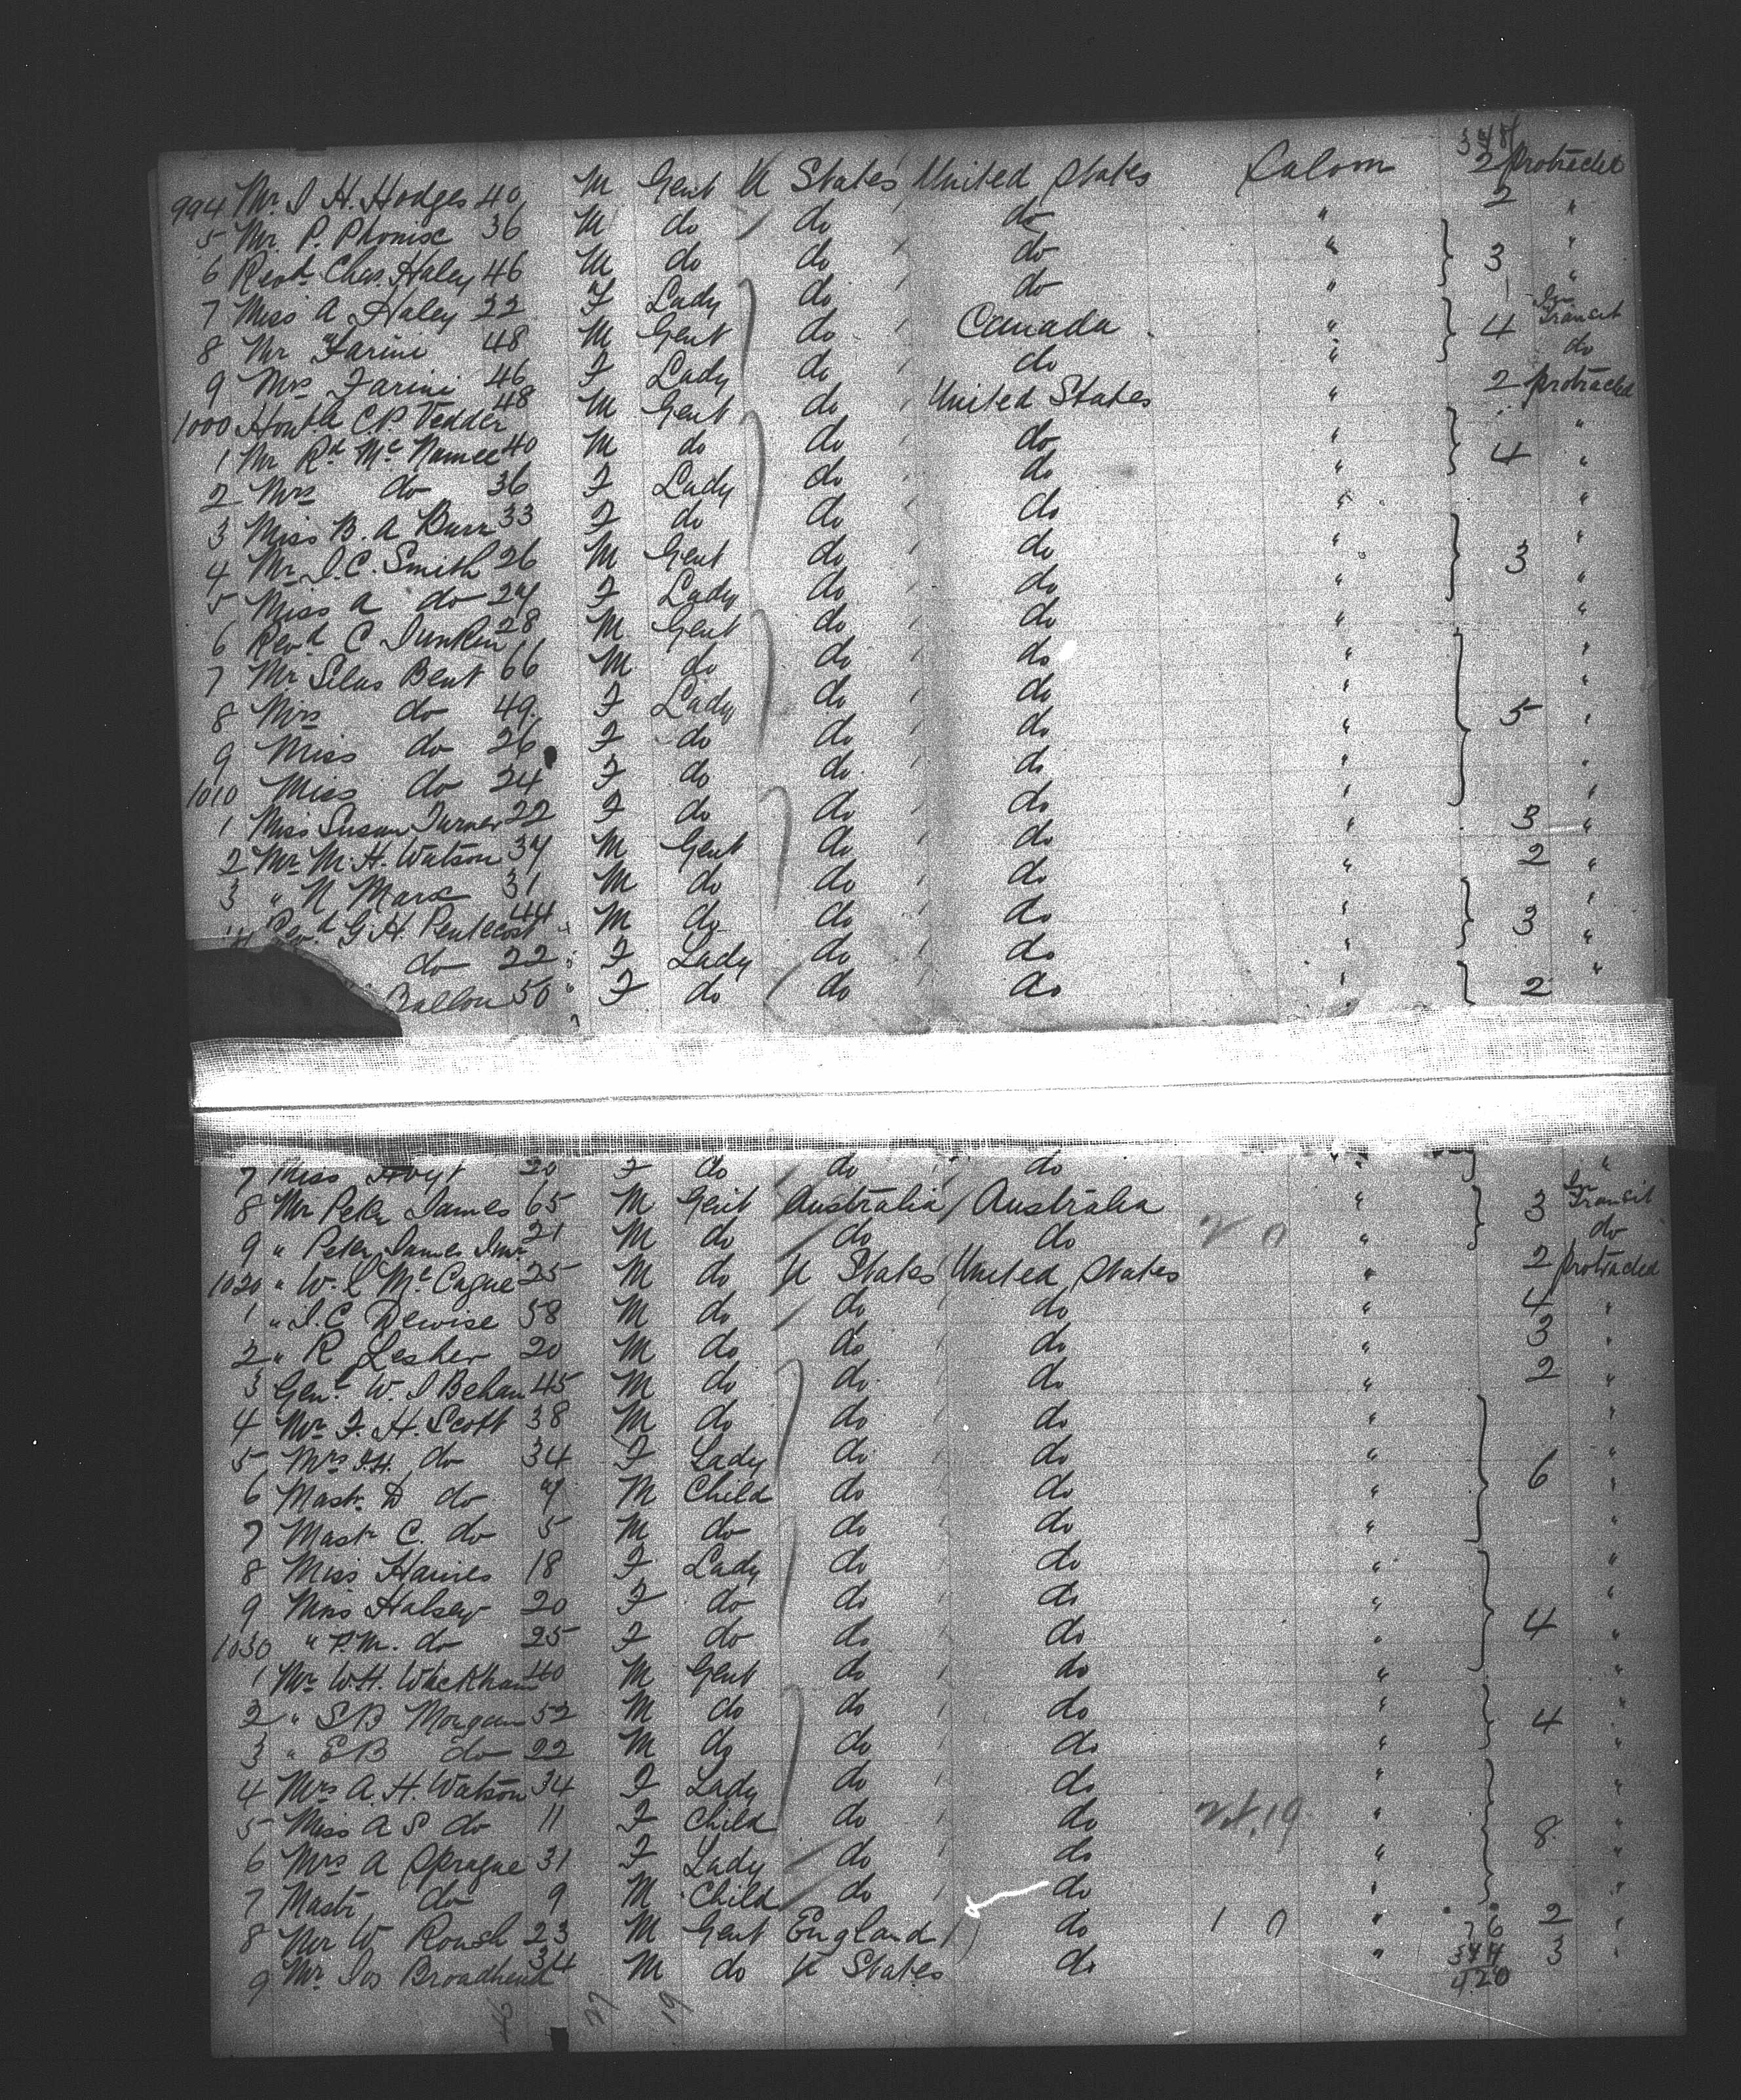 348
994 Mr. I H. Hodges 40 M Gent U States United States Saloon 2 protracted
5 Mr. P. Phonisc 36 M do do do " 2 "
6 Revd. Chas. Haley 46 M do do do " 3 "
7 Miss A Haley 22 F Lady do do " "
8 Mr Farini 48 M Gent do Canada " 4 In Transit
9 Mrs Farini 46 F Lady do do " do
1000 Honble C P Vedder 48 M Gent do United States " 2 protracted
1 Mr Rd Mc Namee 40 M do do do " 4 "
2 Mrs do 36 F Lady do do " "
3 Miss B. A Burr 33 F do do do " "
4 Mr. I. C. Smith 26 M Gent do do " 3 "
5 Miss A do 24 F Lady do do " "
6 Revd C Dunken 28 M Gent do do " "
7 Mr Silas Bent 66 M do do do " 5 "
8 Mrs do 49 F Lady do do " "
9 Miss do 26 F do do do " "
1010 Miss do 24 F do do do " "
1 Miss Susan Turner 22 F do do do " 3 "
2 Mr M. H. Watson 34 M Gent do do " 2 "
3 " N Marx 31 M do do do " "
4 Revd G. H. Pentecost 44 M do do do " 3 "
do 22 F Lady do do " "
Ballou 50 F do do do " 2 "
7 Miss Hoyt 20 F do do do " "
8 Mr Peter James 65 M Gent Australia Australia " 3 In Transit
9 " Peter James Junr. 21 M do do do " do
1020 " W. L Mc Cague 25 M do U States United States " 2 protracted
1 " I. C Dewise 58 M do do do " 4 "
2 " R Lesher 20 M do do do " 3 "
3 Genl. W. I Behan 45 M do do do " 2 "
4 Mr F. H. Scott 38 M do do do " 6 "
5 Mrs F.H. do 34 F Lady do do " "
6 Mastr. D do 4 M Child do do " "
7 Mastr C. do 5 M do do do " "
8 Miss Haines 18 F Lady do do " 4 "
9 Miss Halsey 20 F do do do " "
1030 " P.M. do 25 F do do do " "
1 Mr W. H. Wackham 40 M Gent do do " "
2 " S B Morgan 52 M do do do " 4 "
3 " E B do 22 M do do do " "
4 Mrs A. H. Watson 34 F Lady do do " 8 "
5 Miss A S do 11 F Child do do " "
6 Mrs A Sprague 31 F Lady do do " "
7 Mastr. do 9 M Child do do " "
8 Mr W Roush 23 M Gent England do 1 0 " 76 2 "
9 Mr. Jos Broadhead 34 M do U States do " 344 3 "
420